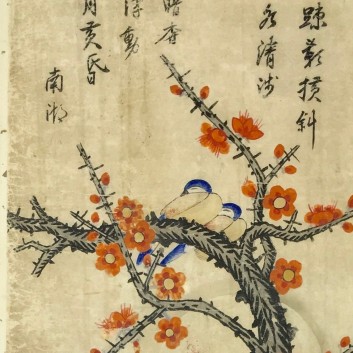 踈影横斜
水清浅
暗香
浮動
月黄昏
南湖